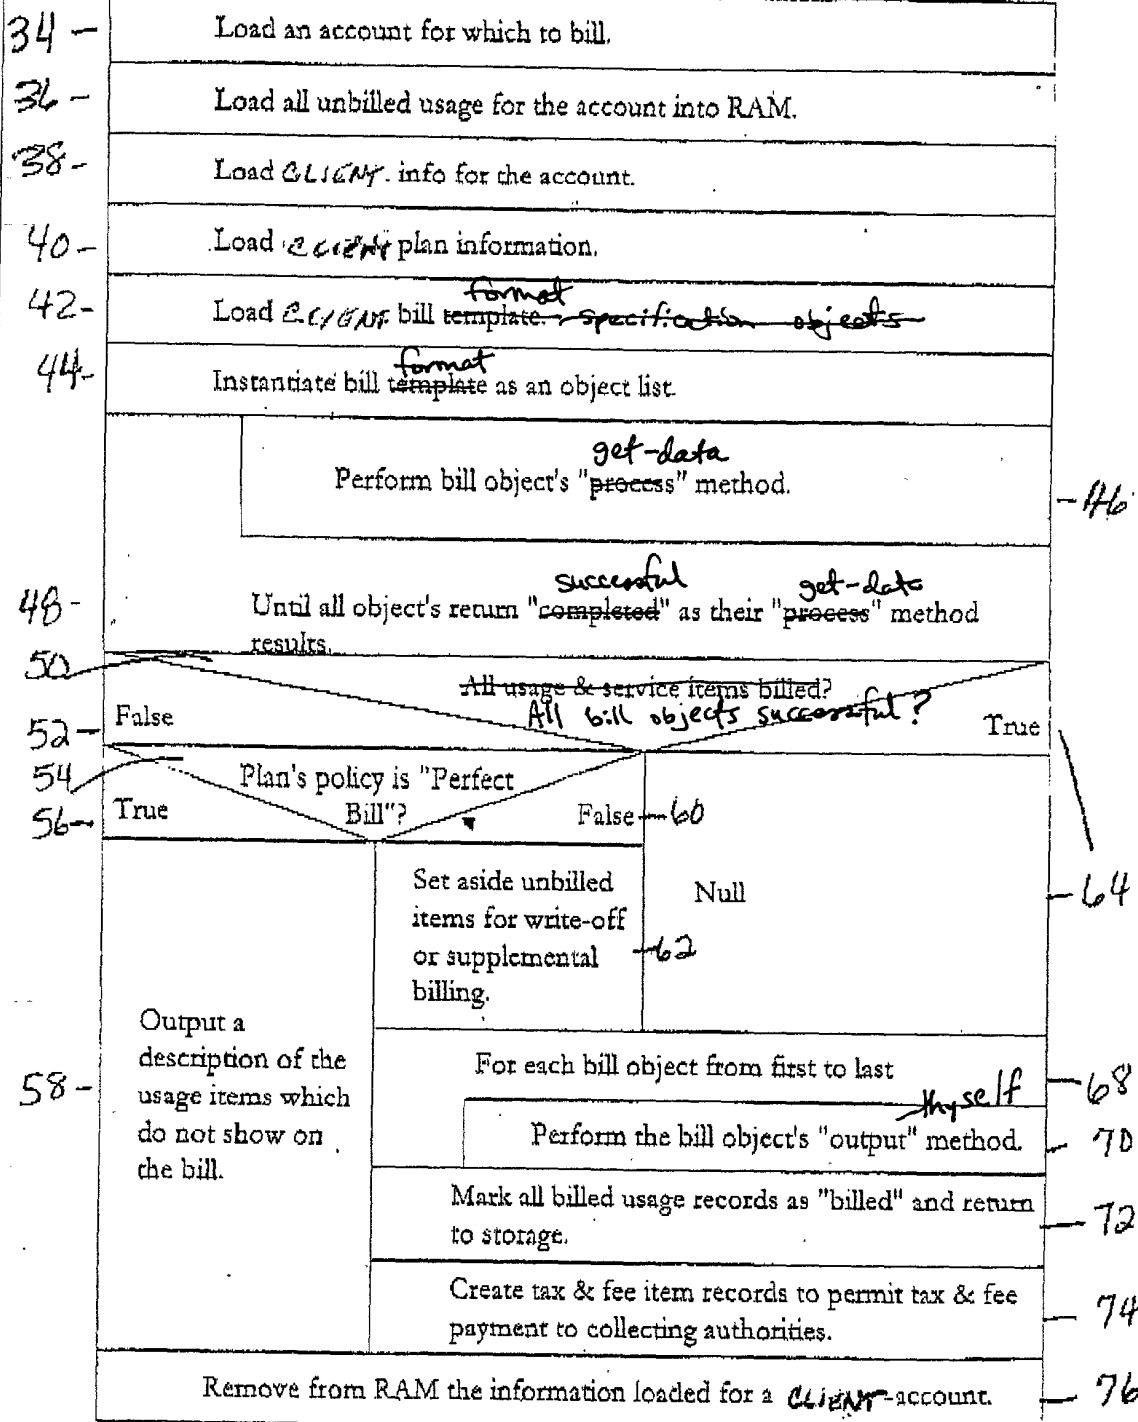 34 - Load an account for which to bill.
36 - Load all unbilled usage for the account into RAM.
38 - Load CLIENT. info for the account.
40 - Load CLIENT plan information.
format
42 - Load CLIENT bill template. specification objects
format
44 - Instantiate bill template as an object list.
get-data
Perform bill object's "process" method. - 46
successful get-data
48 - Until all object's return "completed" as their "process" method
results.
50
All usage & service items billed?
All bill objects successful?
52 - False True
54 Plan's policy is "Perfect
56 - True Bill"? False - 60
Set aside unbilled
items for write-off
or supplemental
billing.
- 62
Null - 64
58 - Output a
description of the
usage items which
do not show on
the bill.
For each bill object from first to last - 68
thyself
Perform the bill object's "output" method. - 70
Mark all billed usage records as "billed" and return
to storage. - 72
Create tax & fee item records to permit tax & fee
payment to collecting authorities. - 74
Remove from RAM the information loaded for a CLIENT-account. - 76